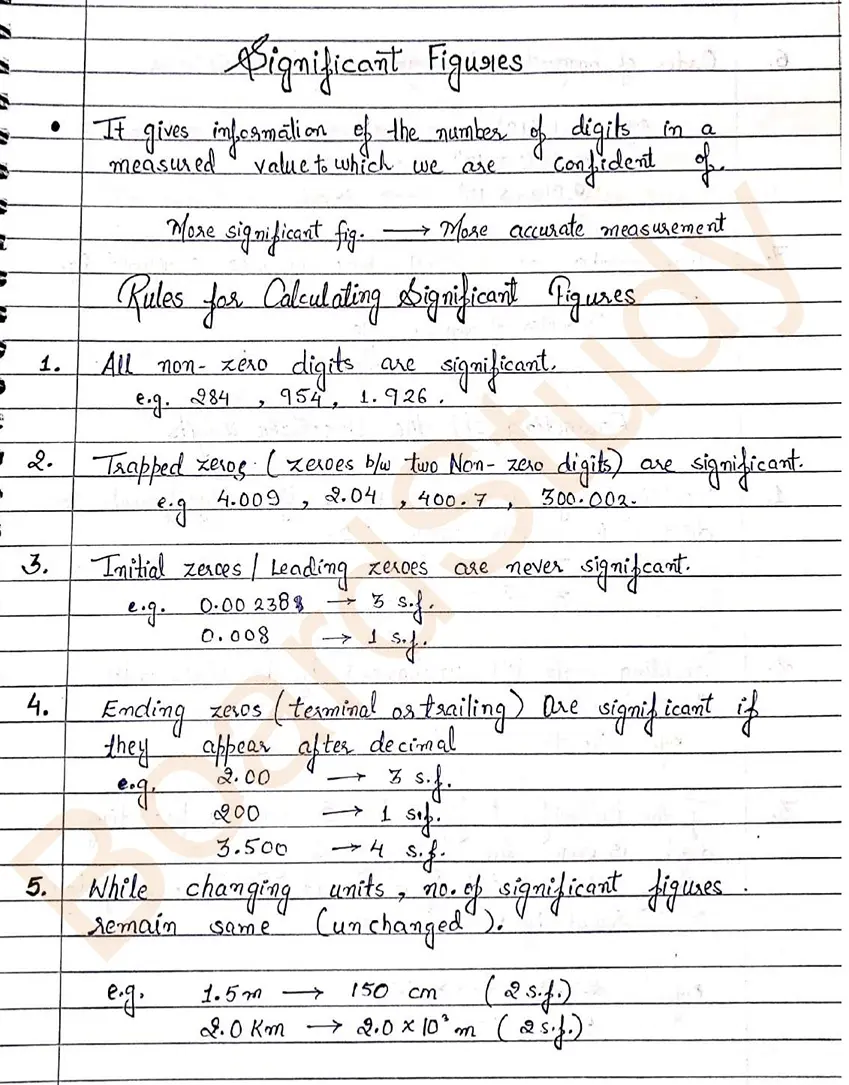 Significant Figures
• It gives information of the number of digits in a
measured value to which we are confident of.
More significant fig. → More accurate measurement
Rules for Calculating Significant Figures
1. All non-zero digits are significant.
e.g. 284 , 954 , 1.926 .
2. Trapped zeros (zeroes b/w two Non-zero digits) are significant.
e.g 4.009 , 2.04 , 400.7 , 300.002.
3. Initial zeroes / Leading zeroes are never signifcant.
e.g. 0.00238 → 3 s.f.
0.008 → 1 s.f.
4. Ending zeros (terminal or trailing) are significant if
they appear after decimal
e.g. 2.00 → 3 s.f.
200 → 1 s.f.
3.500 → 4 s.f.
5. While changing units, no. of significant figures
remain same (unchanged).
e.g. 1.5 m → 150 cm (2 s.f.)
2.0 Km → 2.0 × 10³ m (2 s.f.)
BoardStudy